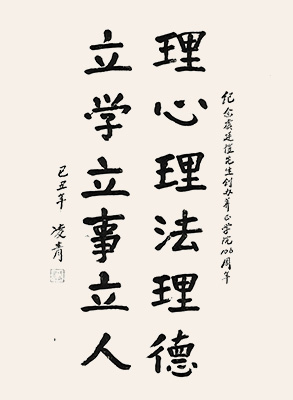 纪念虞廷恺先生创办养正学院106周年
理心理法理德
立学立事立人
己丑年 凌青